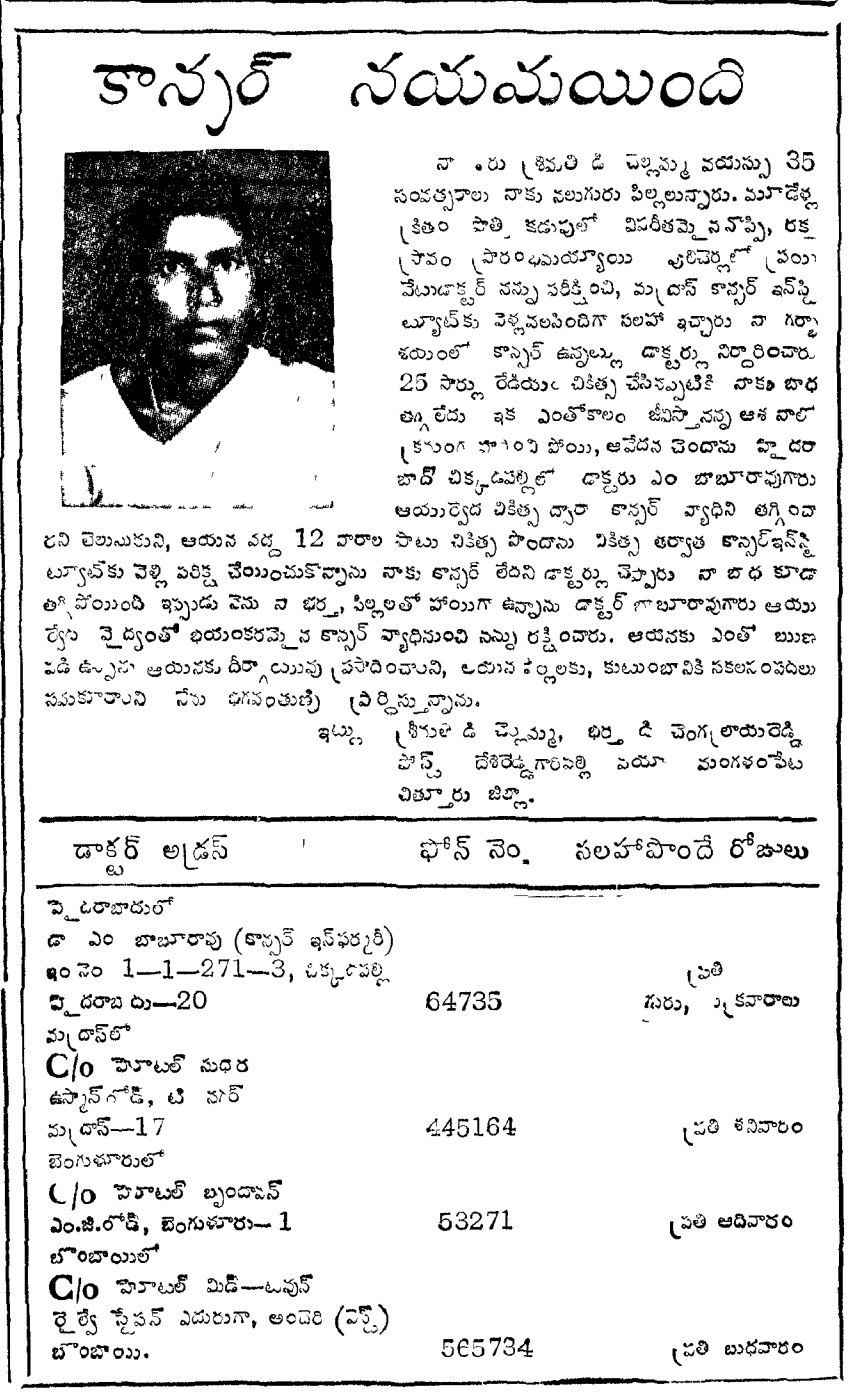 కాన్సర్ నయమయింది
నా శ్రీమతి డి చెల్లమ్మ వయస్సు 35
సంవత్సరాలు నాకు నలుగురు పిల్లలున్నారు. మూడేళ్ళ
క్రితం పొత్తి కడుపులో విపరీతమైన నొప్పి, రక్త
స్రావం ప్రారంభమయ్యాయి పులిచెర్లలో ప్రయి
వేటుడాక్టర్ నన్ను పరీక్షించి, మద్రాస్ కాన్సర్ ఇన్‌స్టి
ట్యూట్‌కు వెళ్ళవలసిందిగా సలహా ఇచ్చారు నా గర్భా
శయంలో కాన్సర్ ఉన్నట్లు డాక్టర్లు నిర్ధారించారు
25 సార్లు రేడియం చికిత్స చేసినప్పటికి నాకు బాధ
తగ్గలేదు ఇక ఎంతోకాలం జీవిస్తానన్న ఆశ నాలో
పోయి, ఆవేదన చెందాను హైదరా
బాద్ చిక్కడపల్లిలో డాక్టరు ఎం బాబూరావుగారు
ఆయుర్వేద చికిత్స ద్వారా కాన్సర్ వ్యాధిని తగ్గించా
రని తెలుసుకుని, ఆయన వద్ద 12 వారాల పాటు చికిత్స పొందాను చికిత్స తర్వాత కాన్సర్ఇన్‌స్టి
ట్యూట్‌కు వెళ్లి పరీక్ష చేయించుకొన్నాను నాకు కాన్సర్ లేదని డాక్టర్లు చెప్పారు నా బాధ కూడా
తగ్గిపోయింది ఇప్పుడు నేను నా భర్త, పిల్లలతో హాయిగా ఉన్నాను డాక్టర్ బాబూరావుగారు ఆయు
ర్వేద వైద్యంతో భయంకరమైన కాన్సర్ వ్యాధినుంచి నన్ను రక్షించారు. ఆయనకు ఎంతో ఋణ
పడి ఉన్నాను ఆయనకు దీర్ఘాయువు ప్రసాదించాలని, ఆయన పిల్లలకు, కుటుంబానికి సకలసంపదలు
సమకూరాలని నేను భగవంతుణ్ణి ప్రార్థిస్తున్నాను.
ఇట్లు శ్రీమతి డి చెల్లమ్మ, భర్త డి చెంగలాయరెడ్డి
పోస్ట్ దేశిరెడ్డిగారిపల్లి వయా మంగళంపేట
చిత్తూరు జిల్లా.
డాక్టర్ అడ్రస్ ఫోన్ నెం. సలహాపొందే రోజులు
హైదరాబాదులో
డా ఎం బాబూరావు (కాన్సర్ ఇన్‌ఫర్మరీ)
ఇం నెం 1—1—271—3, చిక్కడపల్లి ప్రతి
హైదరాబాదు—20 64735 గురు, శుక్రవారాలు
మద్రాస్‌లో
C/o హొటల్ సుధర
ఉస్మాన్‌రోడ్, టి నగర్
మద్రాస్—17 445164 ప్రతి శనివారం
బెంగుళూరులో
C/o హొటల్ బృందావన్
ఎం.జి.రోడ్, బెంగుళూరు—1 53271 ప్రతి ఆదివారం
బొంబాయిలో
C/o హొటల్ మిడ్—టవున్
రైల్వే స్టేషన్ ఎదురుగా, అంధెరి (వెస్ట్)
బొంబాయి. 565734 ప్రతి బుధవారం